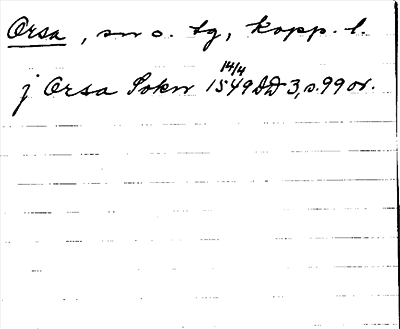 Orsa, sn o. tg, kopp. l.
j Orsa Sokn 14/4 1549 DD 3, s. 99 or.